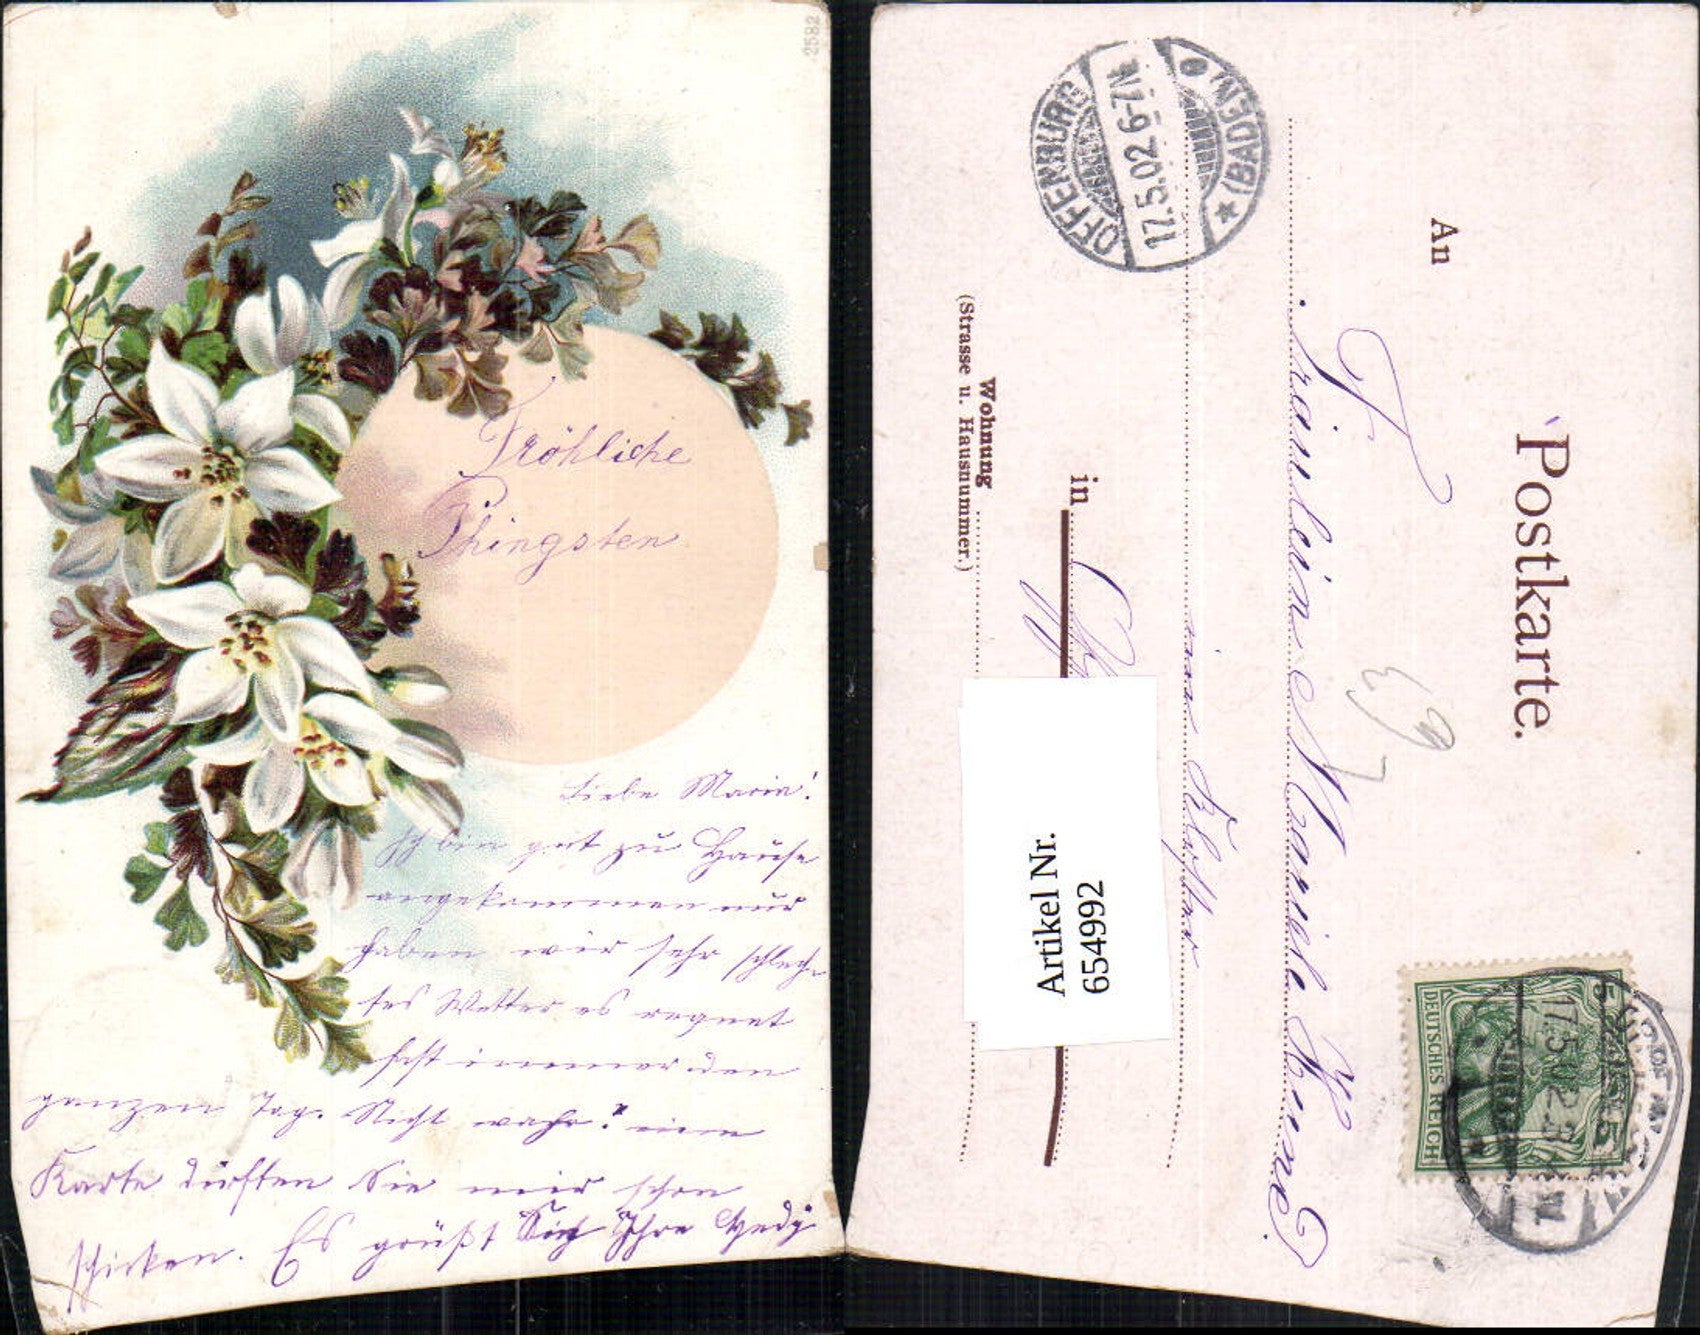 2582
Fröhliche
Phingsten
Liebe Maria!
Ich bin gut zu Hause
angekommen nur
haben wir sehr schlech-
tes Wetter es regnet
fast immer den
ganzen Tag. Nicht wahr? eine
Karte dürften Sie mir schon
schicken. Es grüßt Sie Ihre Hedy
OFFENBURG
17.5.02.6-7N.
* (BADEN)
An
Postkarte.
Fräulein Marie
im Kloster
in
Wohnung
(Strasse u. Hausnummer.)
Artikel Nr.
654992
DEUTSCHES REICH
5
17.5.02